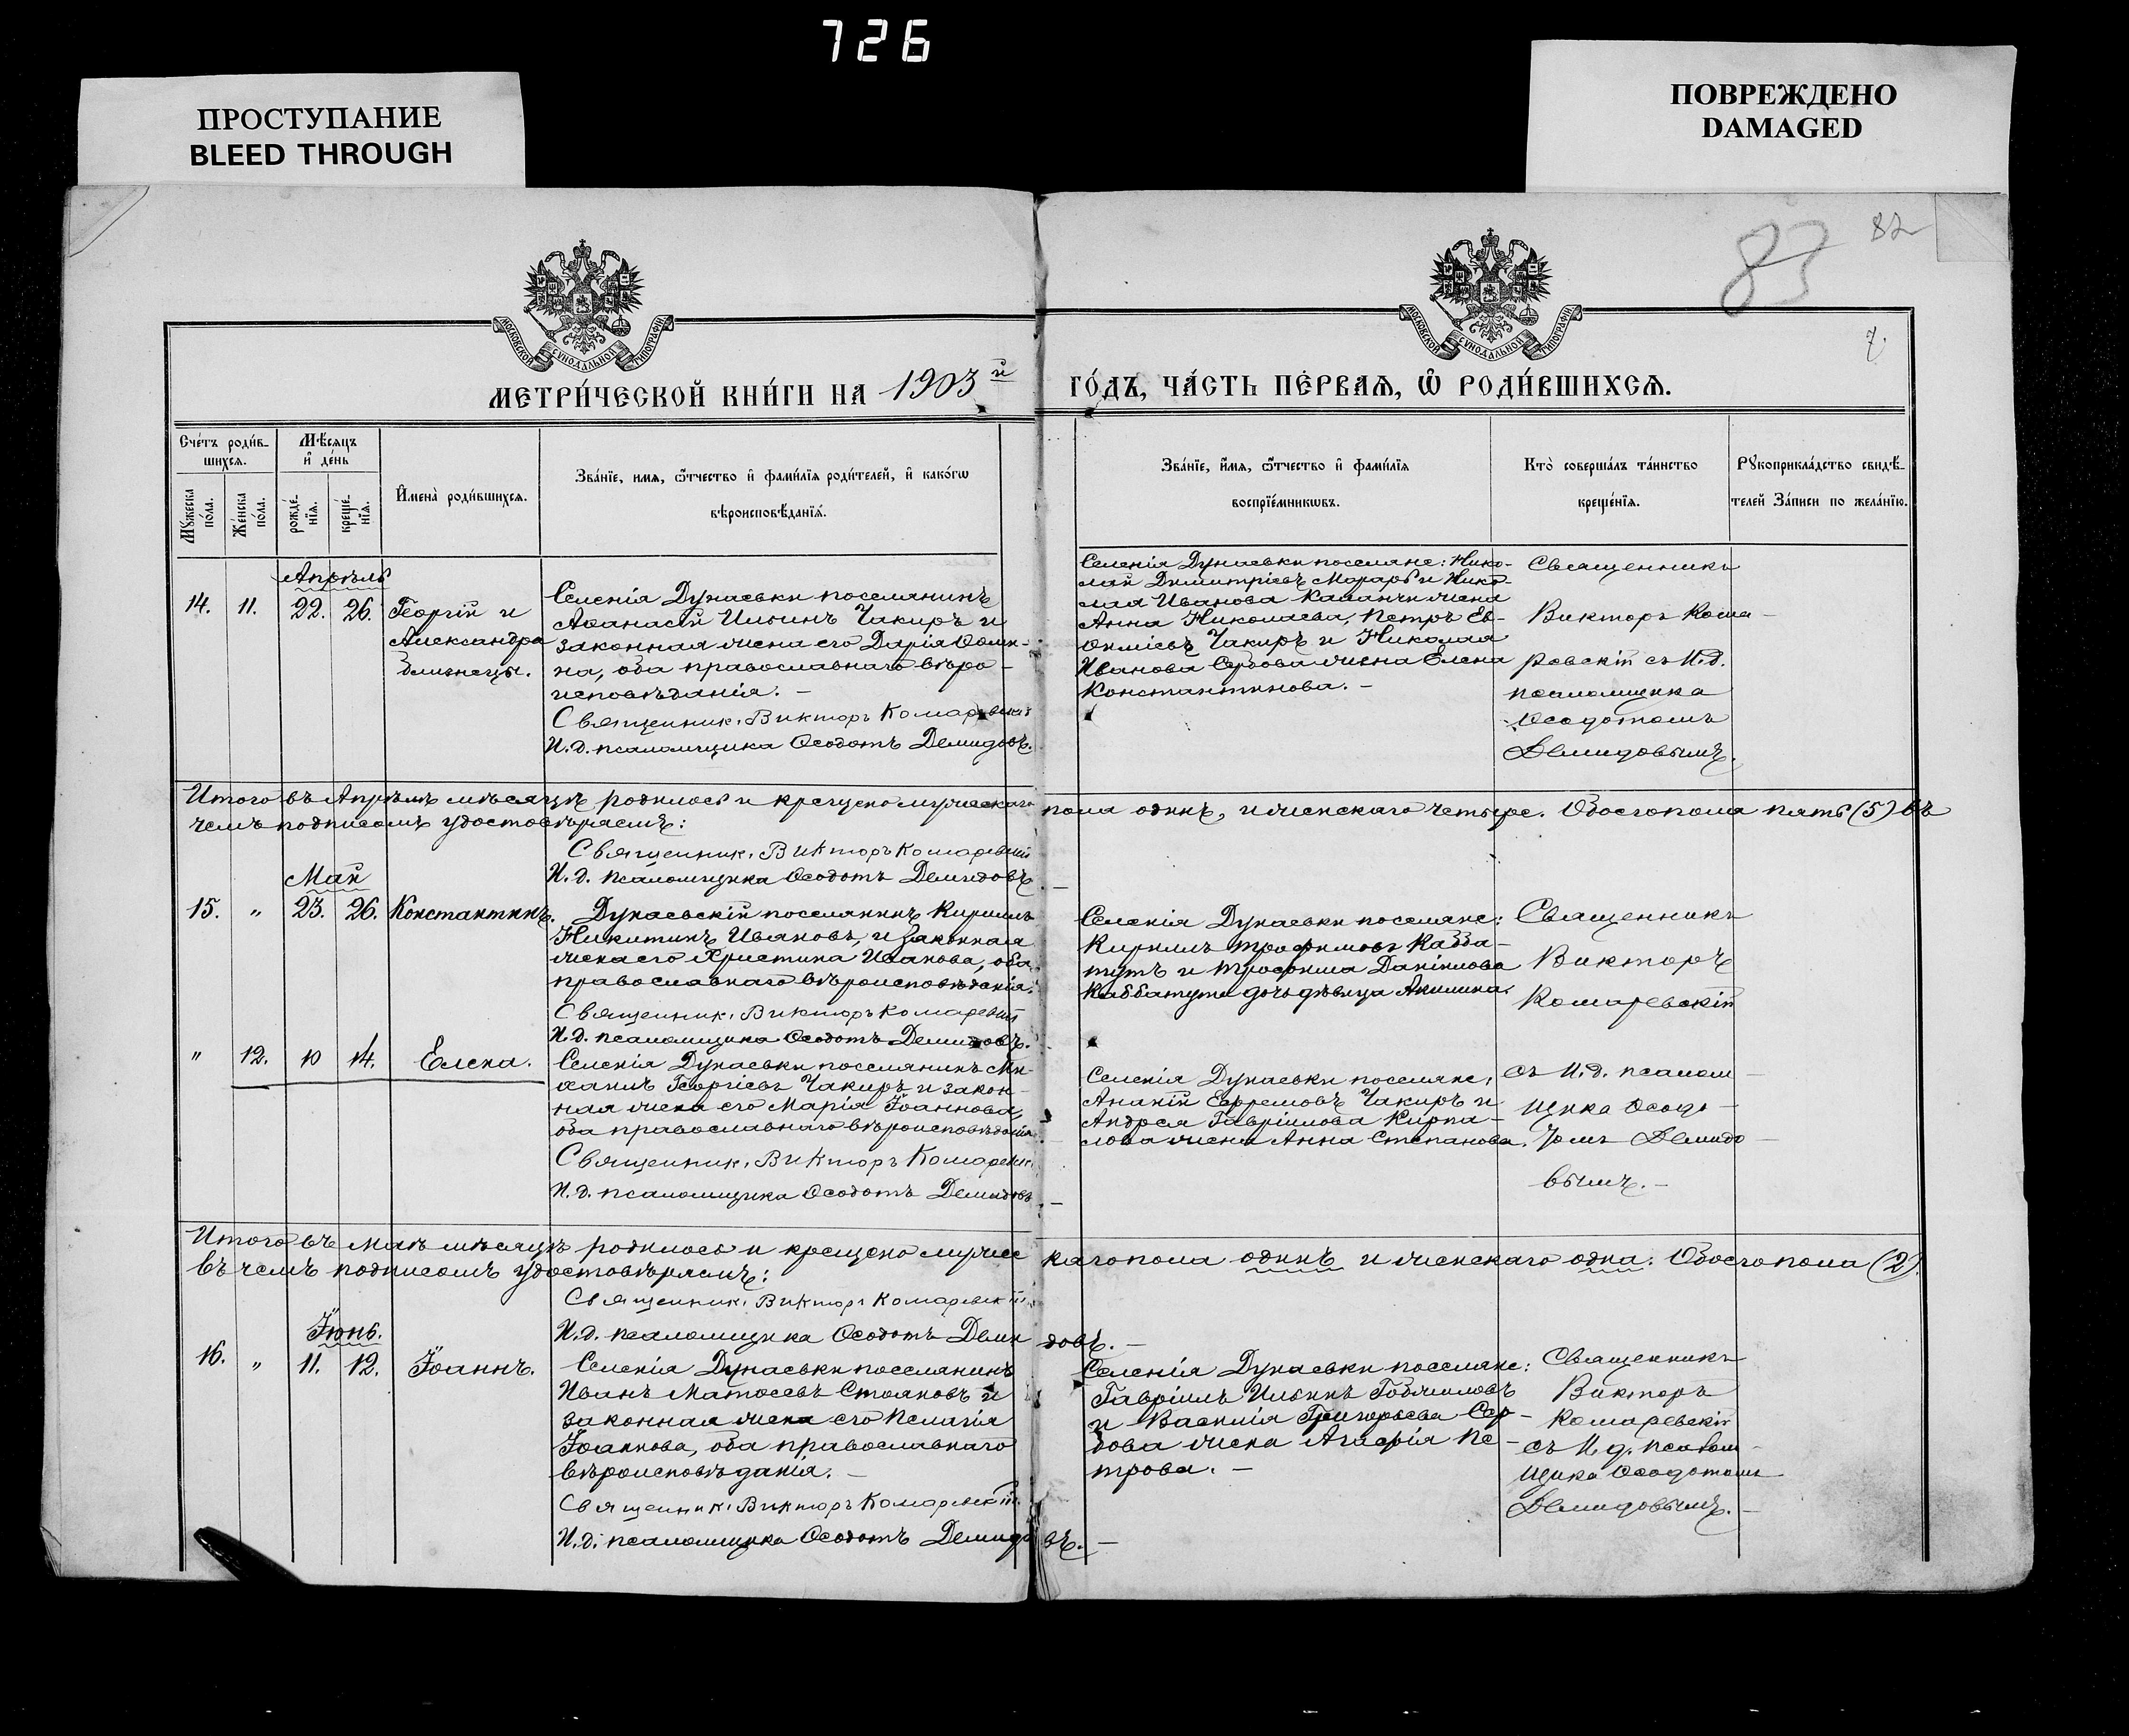 726
ПРОСТУПАНИЕ
BLEED THROUGH
ПОВРЕЖДЕНО
DAMAGED
83 82
7.
МОСКОВСКОЙ СѴНОДАЛЬНОЙ ТИПОГРАФІИ
МОСКОВСКОЙ СѴНОДАЛЬНОЙ ТИПОГРАФІИ
МЕТРИ́ЧЕСКОЙ КНИ́ГИ НА 1903й ГО́ДЪ, ЧА́СТЬ ПЕ́РВАѦ, Ѡ҆ РОДИ́ВШИХСѦ.
Сче́тъ роди́в-
шихсѧ.
Мꙋжеска
по́ла.
Же́нска
по́ла.
Мѣ́сѧцъ
и҆ де́нь
рожде́-
нїѧ.
креще́-
нїѧ.
И҆мена̀ роди́вшихсѧ.
Зва́нїе, имѧ, ѻ҆́тчество и҆ фами́лїѧ роди́телей, и҆ како́гѡ
вѣроисповѣ́данїѧ.
Зва́нїе, и҆́мѧ, ѻ҆́тчество и҆ фами́лїѧ
воспрїе́мникѡвъ.
Кто̀ соверша́лъ та́инство
креще́нїѧ.
Рꙋкоприкла́дство свидѣ́-
телей За́писи по жела́нїю.
Апрѣль
14. 11. 22. 26. Георгій и
Александра
близнецы.
Селенія Дунаевки поселянинъ
Аѳанасій Ильинъ Чакиръ и
законная жена его Дарія Ѳоми-
на, оба православнаго вѣро-
исповѣданія. –
Священник. Викторъ Комаревскій
И.д. псаломщика Ѳеодотъ Демидовъ.
Селенія Дунаевки поселяне: Нико-
лай Димитріевъ Мораръ и Нико-
лая Иванова Каланчи жена
Анна Николаева, Петръ Ев-
ѳиміевъ Чакиръ и Николая
Иванова Сербова жена Елена
Константинова. –
Священникъ
Викторъ Кома-
ревскій съ И.д.
псаломщика
Ѳеодотомъ
Демидовымъ.
Итого въ Апрѣлѣ мѣсяцѣ родилось и крещено мужескаго пола одинъ, и женскаго четыре. Обоего пола пять (5) въ
чемъ подписомъ удостовѣряемъ:
Священник. Викторъ Комаревскій
И.д. псаломщика Ѳеодотъ Демидовъ. –
Май
15. " 23. 26. Константинъ.
Дунаевскій поселянинъ Кириллъ
Никитинъ Ивановъ, и законная
жена его Христина Иванова, оба
православнаго вѣроисповѣданія.
Священник. Викторъ Комаревскій
И.д. псаломщика Ѳеодотъ Демидовъ.
Селенія Дунаевки поселяне:
Кириллъ Трофимовъ Кабба-
тутъ и Трофима Даніилова
Каббатути дочь дѣвица Акилина.
Священникъ
Викторъ
Комаревскій
" 12. 10 14. Елена.
Селенія Дунаевки поселянинъ Ми-
хаилъ Георгіевъ Чакиръ и закон-
ная жена его Марія Іоаннова,
оба православнаго вѣроисповѣданія
Священник. Викторъ Комаревск.
И.д. псаломщика Ѳеодотъ Демидовъ. –
Селенія Дунаевки поселяне,
Ананій Ефремовъ Чакиръ и
Андрея Гавріилова Кирпа-
лова жена Анна Степанова.
съ И.д. псалом-
щика Ѳеодо-
томъ Демидо-
вымъ. –
Итого въ Маѣ мѣсяцѣ родилось и крещено мужескаго пола одинъ и женскаго одна. Обоего пола (2).
въ чемъ подписомъ удостовѣряемъ:
Священник. Викторъ Комаревскій
И.д. псаломщика Ѳеодотъ Демидовъ. –
Іюнь.
16. " 11. 12. Іоаннъ.
Селенія Дунаевки поселянинъ
Иванъ Матѳеевъ Стояновъ и
законная жена его Пелагія
Іоаннова, оба православнаго
вѣроисповѣданія. –
Священник. Викторъ Комаревскій
И.д. псаломщика Ѳеодотъ Демидовъ. –
Селенія Дунаевки поселяне:
Гавріилъ Ильинъ
и Василія Григорьева Сер-
бова жена Агафія Пе-
трова. –
Священникъ
Викторъ
Комаревскій
съ И.д. псалом-
щика Ѳеодотомъ
Демидовымъ. –